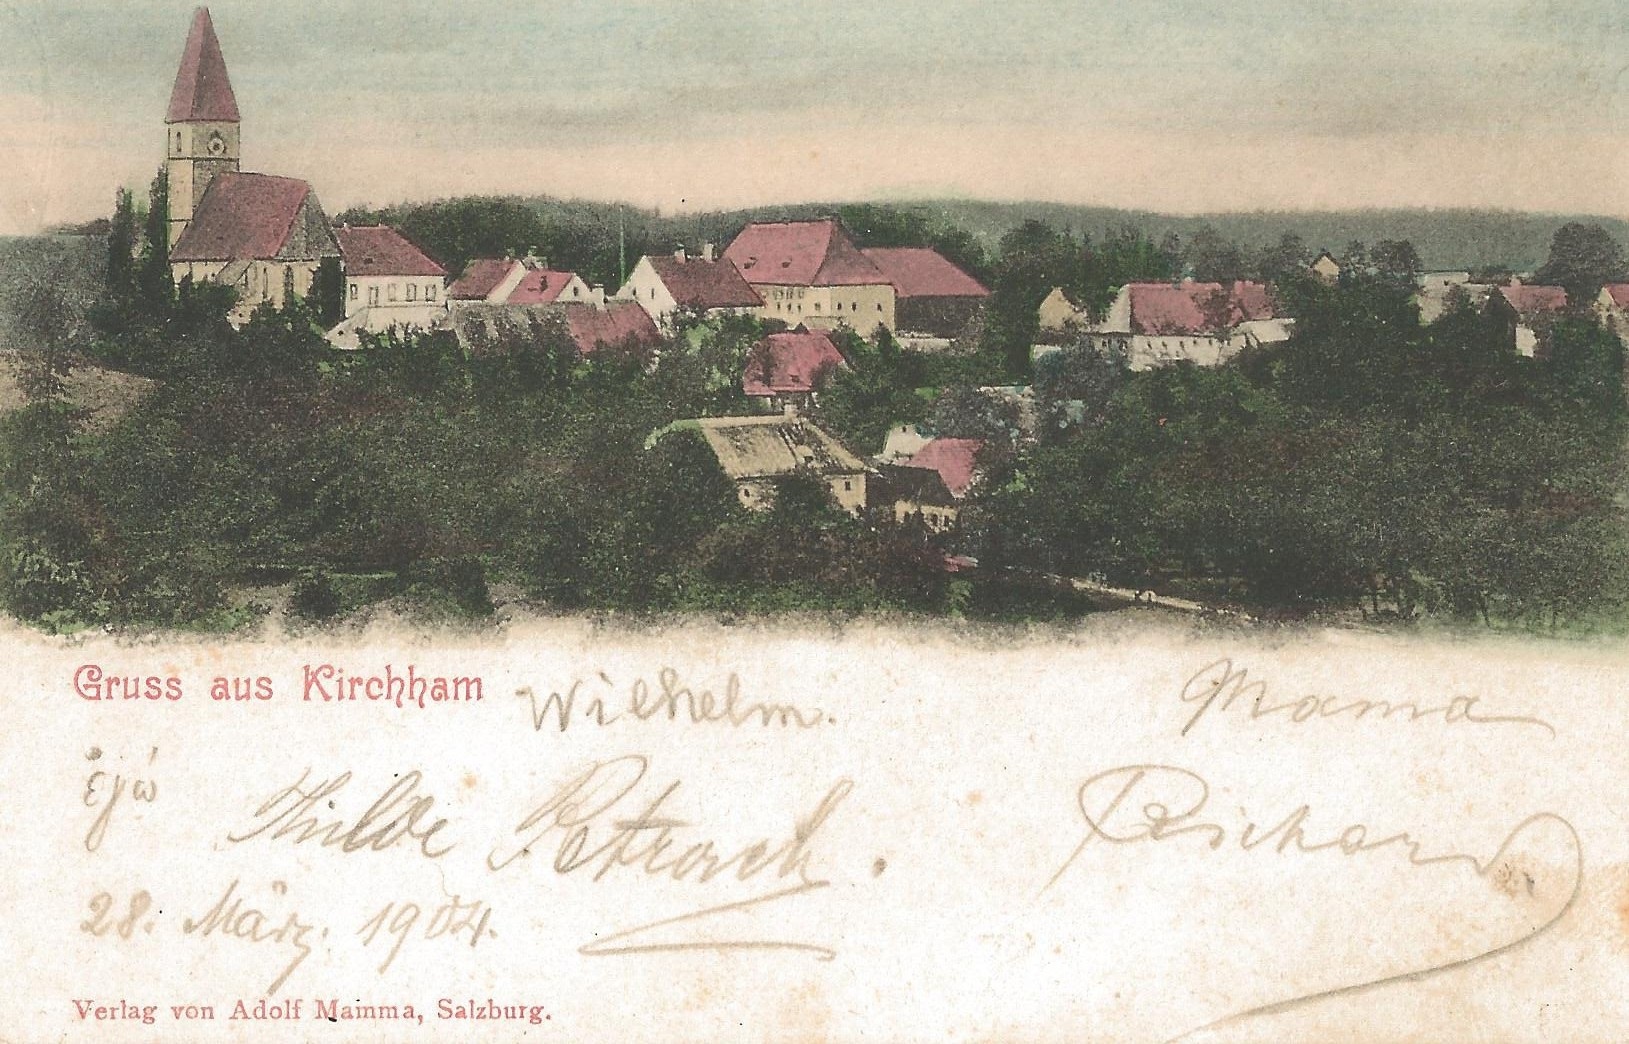 Gruss aus Kirchham
Wilhelm.
Mama
ἐγώ
Hilde Petrach.
Richard
28. März. 1904.
Verlag von Adolf Mamma, Salzburg.